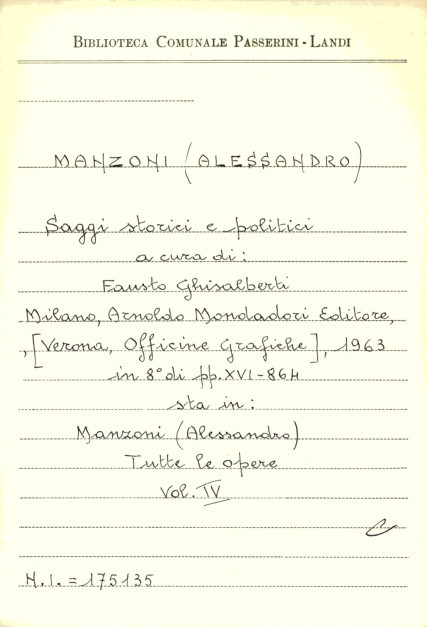 BIBLIOTECA COMUNALE PASSERINI - LANDI
MANZONI (ALESSANDRO)
Saggi storici e politici
a cura di:
Fausto Ghisalberti
Milano, Arnoldo Mondadori Editore,
,[Verona, Officine Grafiche], 1963
in 8° di pp. XVI-864
sta in:
Manzoni (Alessandro)
Tutte le opere
Vol. IV
N.I. = 175135